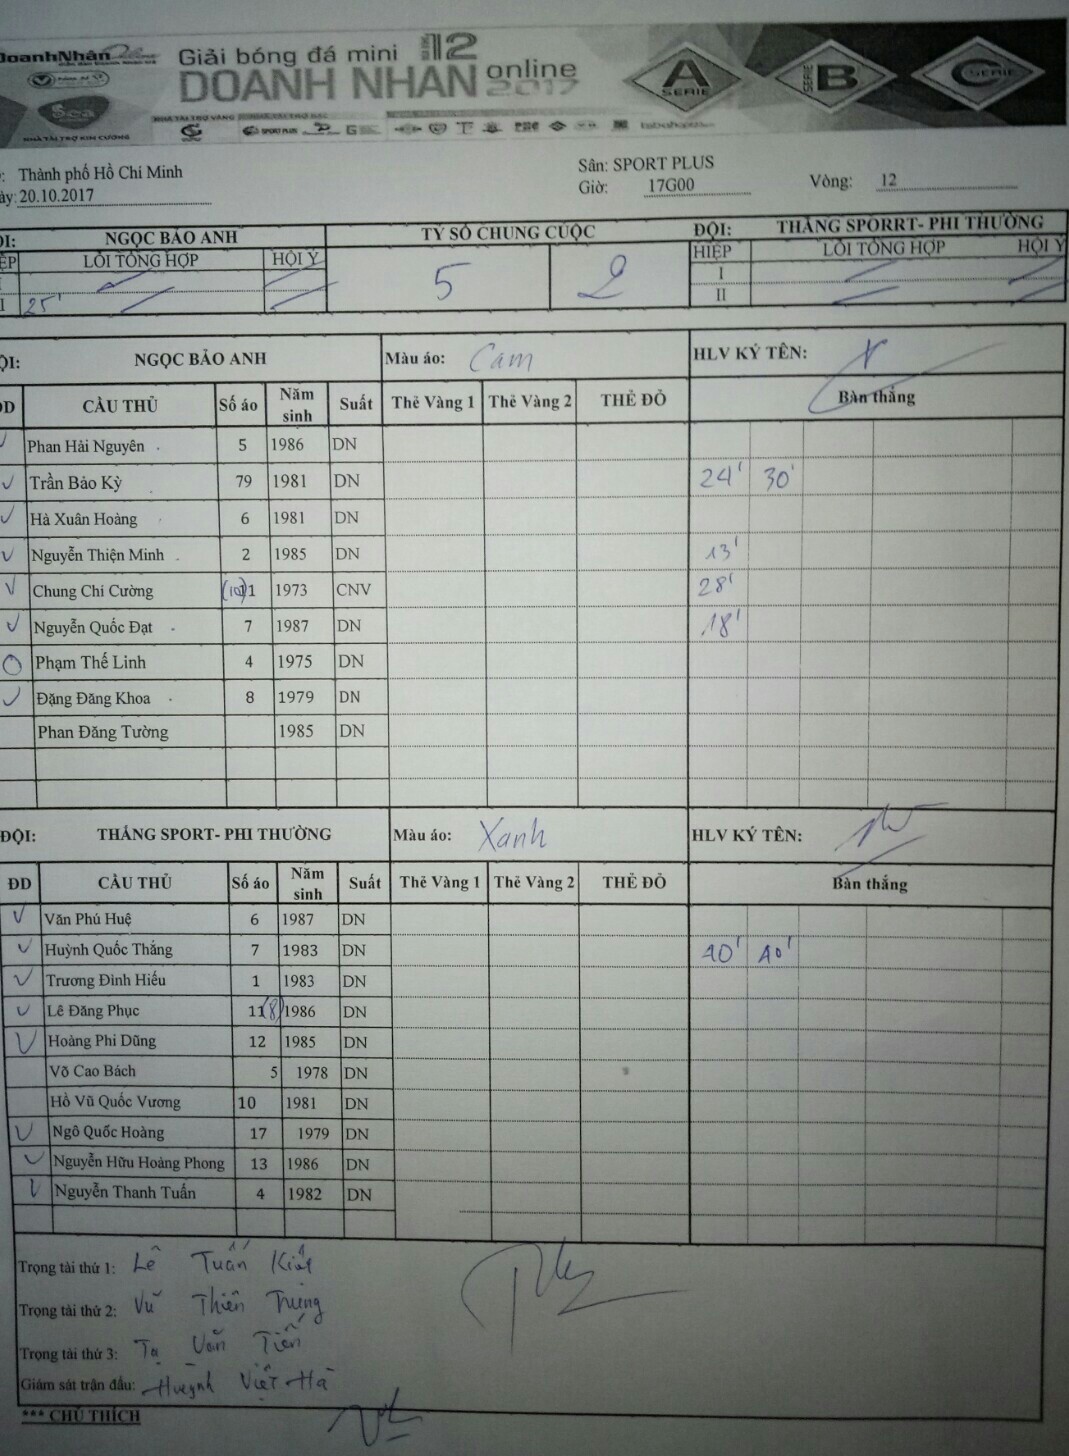 DoanhNhân Online
Giải bóng đá mini LẦN 12
DOANH NHÂN online 2017
A SERIE
SERIE B
C SERIE
Sca
NHÀ TÀI TRỢ KIM CƯƠNG
NHÀ TÀI TRỢ VÀNG
SPORT PLUS
: Thành phố Hồ Chí Minh
Sân: SPORT PLUS
ày: 20.10.2017
Giờ: 17G00
Vòng: 12
ỘI: NGỌC BẢO ANH
TỶ SỐ CHUNG CUỘC
ĐỘI: THẮNG SPORRT- PHI THƯỜNG
ỆP LỖI TỔNG HỢP HỘI Ý
5 2
HIỆP LỖI TỔNG HỢP HỘI Ý
I I
I 25' II
ỘI: NGỌC BẢO ANH Màu áo: Cam HLV KÝ TÊN:
DD CẦU THỦ Số áo Năm sinh Suất Thẻ Vàng 1 Thẻ Vàng 2 THẺ ĐỎ Bàn thắng
Phan Hải Nguyên 5 1986 DN
Trần Bảo Kỳ 79 1981 DN 24' 30'
Hà Xuân Hoàng 6 1981 DN
Nguyễn Thiện Minh 2 1985 DN 13'
Chung Chí Cường (10)1 1973 CNV 28'
Nguyễn Quốc Đạt 7 1987 DN 18'
Phạm Thế Linh 4 1975 DN
Đặng Đăng Khoa 8 1979 DN
Phan Đăng Tường 1985 DN
ĐỘI: THẮNG SPORT- PHI THƯỜNG Màu áo: Xanh HLV KÝ TÊN:
ĐD CẦU THỦ Số áo Năm sinh Suất Thẻ Vàng 1 Thẻ Vàng 2 THẺ ĐỎ Bàn thắng
Văn Phú Huệ 6 1987 DN
Huỳnh Quốc Thắng 7 1983 DN 40' 40'
Trương Đình Hiếu 1 1983 DN
Lê Đăng Phục 11(8) 1986 DN
Hoàng Phi Dũng 12 1985 DN
Võ Cao Bách 5 1978 DN
Hồ Vũ Quốc Vương 10 1981 DN
Ngô Quốc Hoàng 17 1979 DN
Nguyễn Hữu Hoàng Phong 13 1986 DN
Nguyễn Thanh Tuấn 4 1982 DN
Trọng tài thứ 1: Lê Tuấn Kiệt
Trọng tài thứ 2: Vũ Thiên Trung
Trọng tài thứ 3: Tạ Văn Tiến
Giám sát trận đấu: Huỳnh Việt Hà
*** CHÚ THÍCH